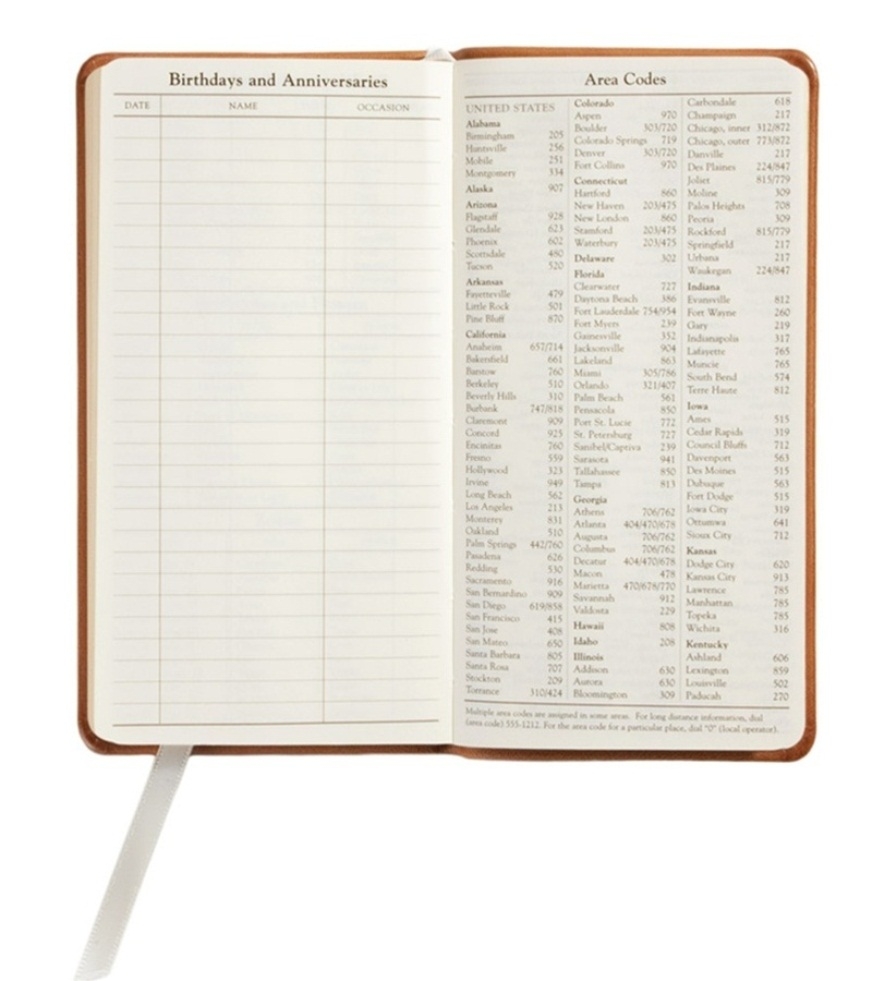 Birthdays and Anniversaries
DATE NAME OCCASION
Area Codes
UNITED STATES
Alabama
Birmingham 205
Huntsville 256
Mobile 251
Montgomery 334
Alaska 907
Arizona
Flagstaff 928
Glendale 623
Phoenix 602
Scottsdale 480
Tucson 520
Arkansas
Fayetteville 479
Little Rock 501
Pine Bluff 870
California
Anaheim 657/714
Bakersfield 661
Barstow 760
Berkeley 510
Beverly Hills 310
Burbank 747/818
Claremont 909
Concord 925
Encinitas 760
Fresno 559
Hollywood 323
Irvine 949
Long Beach 562
Los Angeles 213
Monterey 831
Oakland 510
Palm Springs 442/760
Pasadena 626
Redding 530
Sacramento 916
San Bernardino 909
San Diego 619/858
San Francisco 415
San Jose 408
San Mateo 650
Santa Barbara 805
Santa Rosa 707
Stockton 209
Torrance 310/424
Colorado
Aspen 970
Boulder 303/720
Colorado Springs 719
Denver 303/720
Fort Collins 970
Connecticut
Hartford 860
New Haven 203/475
New London 860
Stamford 203/475
Waterbury 203/475
Delaware 302
Florida
Clearwater 727
Daytona Beach 386
Fort Lauderdale 754/954
Fort Myers 239
Gainesville 352
Jacksonville 904
Lakeland 863
Miami 305/786
Orlando 321/407
Palm Beach 561
Pensacola 850
Port St. Lucie 772
St. Petersburg 727
Sanibel/Captiva 239
Sarasota 941
Tallahassee 850
Tampa 813
Georgia
Athens 706/762
Atlanta 404/470/678
Augusta 706/762
Columbus 706/762
Decatur 404/470/678
Macon 478
Marietta 470/678/770
Savannah 912
Valdosta 229
Hawaii 808
Idaho 208
Illinois
Addison 630
Aurora 630
Bloomington 309
Carbondale 618
Champaign 217
Chicago, inner 312/872
Chicago, outer 773/872
Danville 217
Des Plaines 224/847
Joliet 815/779
Moline 309
Palos Heights 708
Peoria 309
Rockford 815/779
Springfield 217
Urbana 217
Waukegan 224/847
Indiana
Evansville 812
Fort Wayne 260
Gary 219
Indianapolis 317
Lafayette 765
Muncie 765
South Bend 574
Terre Haute 812
Iowa
Ames 515
Cedar Rapids 319
Council Bluffs 712
Davenport 563
Des Moines 515
Dubuque 563
Fort Dodge 515
Iowa City 319
Ottumwa 641
Sioux City 712
Kansas
Dodge City 620
Kansas City 913
Lawrence 785
Manhattan 785
Topeka 785
Wichita 316
Kentucky
Ashland 606
Lexington 859
Louisville 502
Paducah 270
Multiple area codes are assigned in some areas. For long distance information, dial
(area code) 555-1212. For the area code for a particular place, dial "0" (local operator).